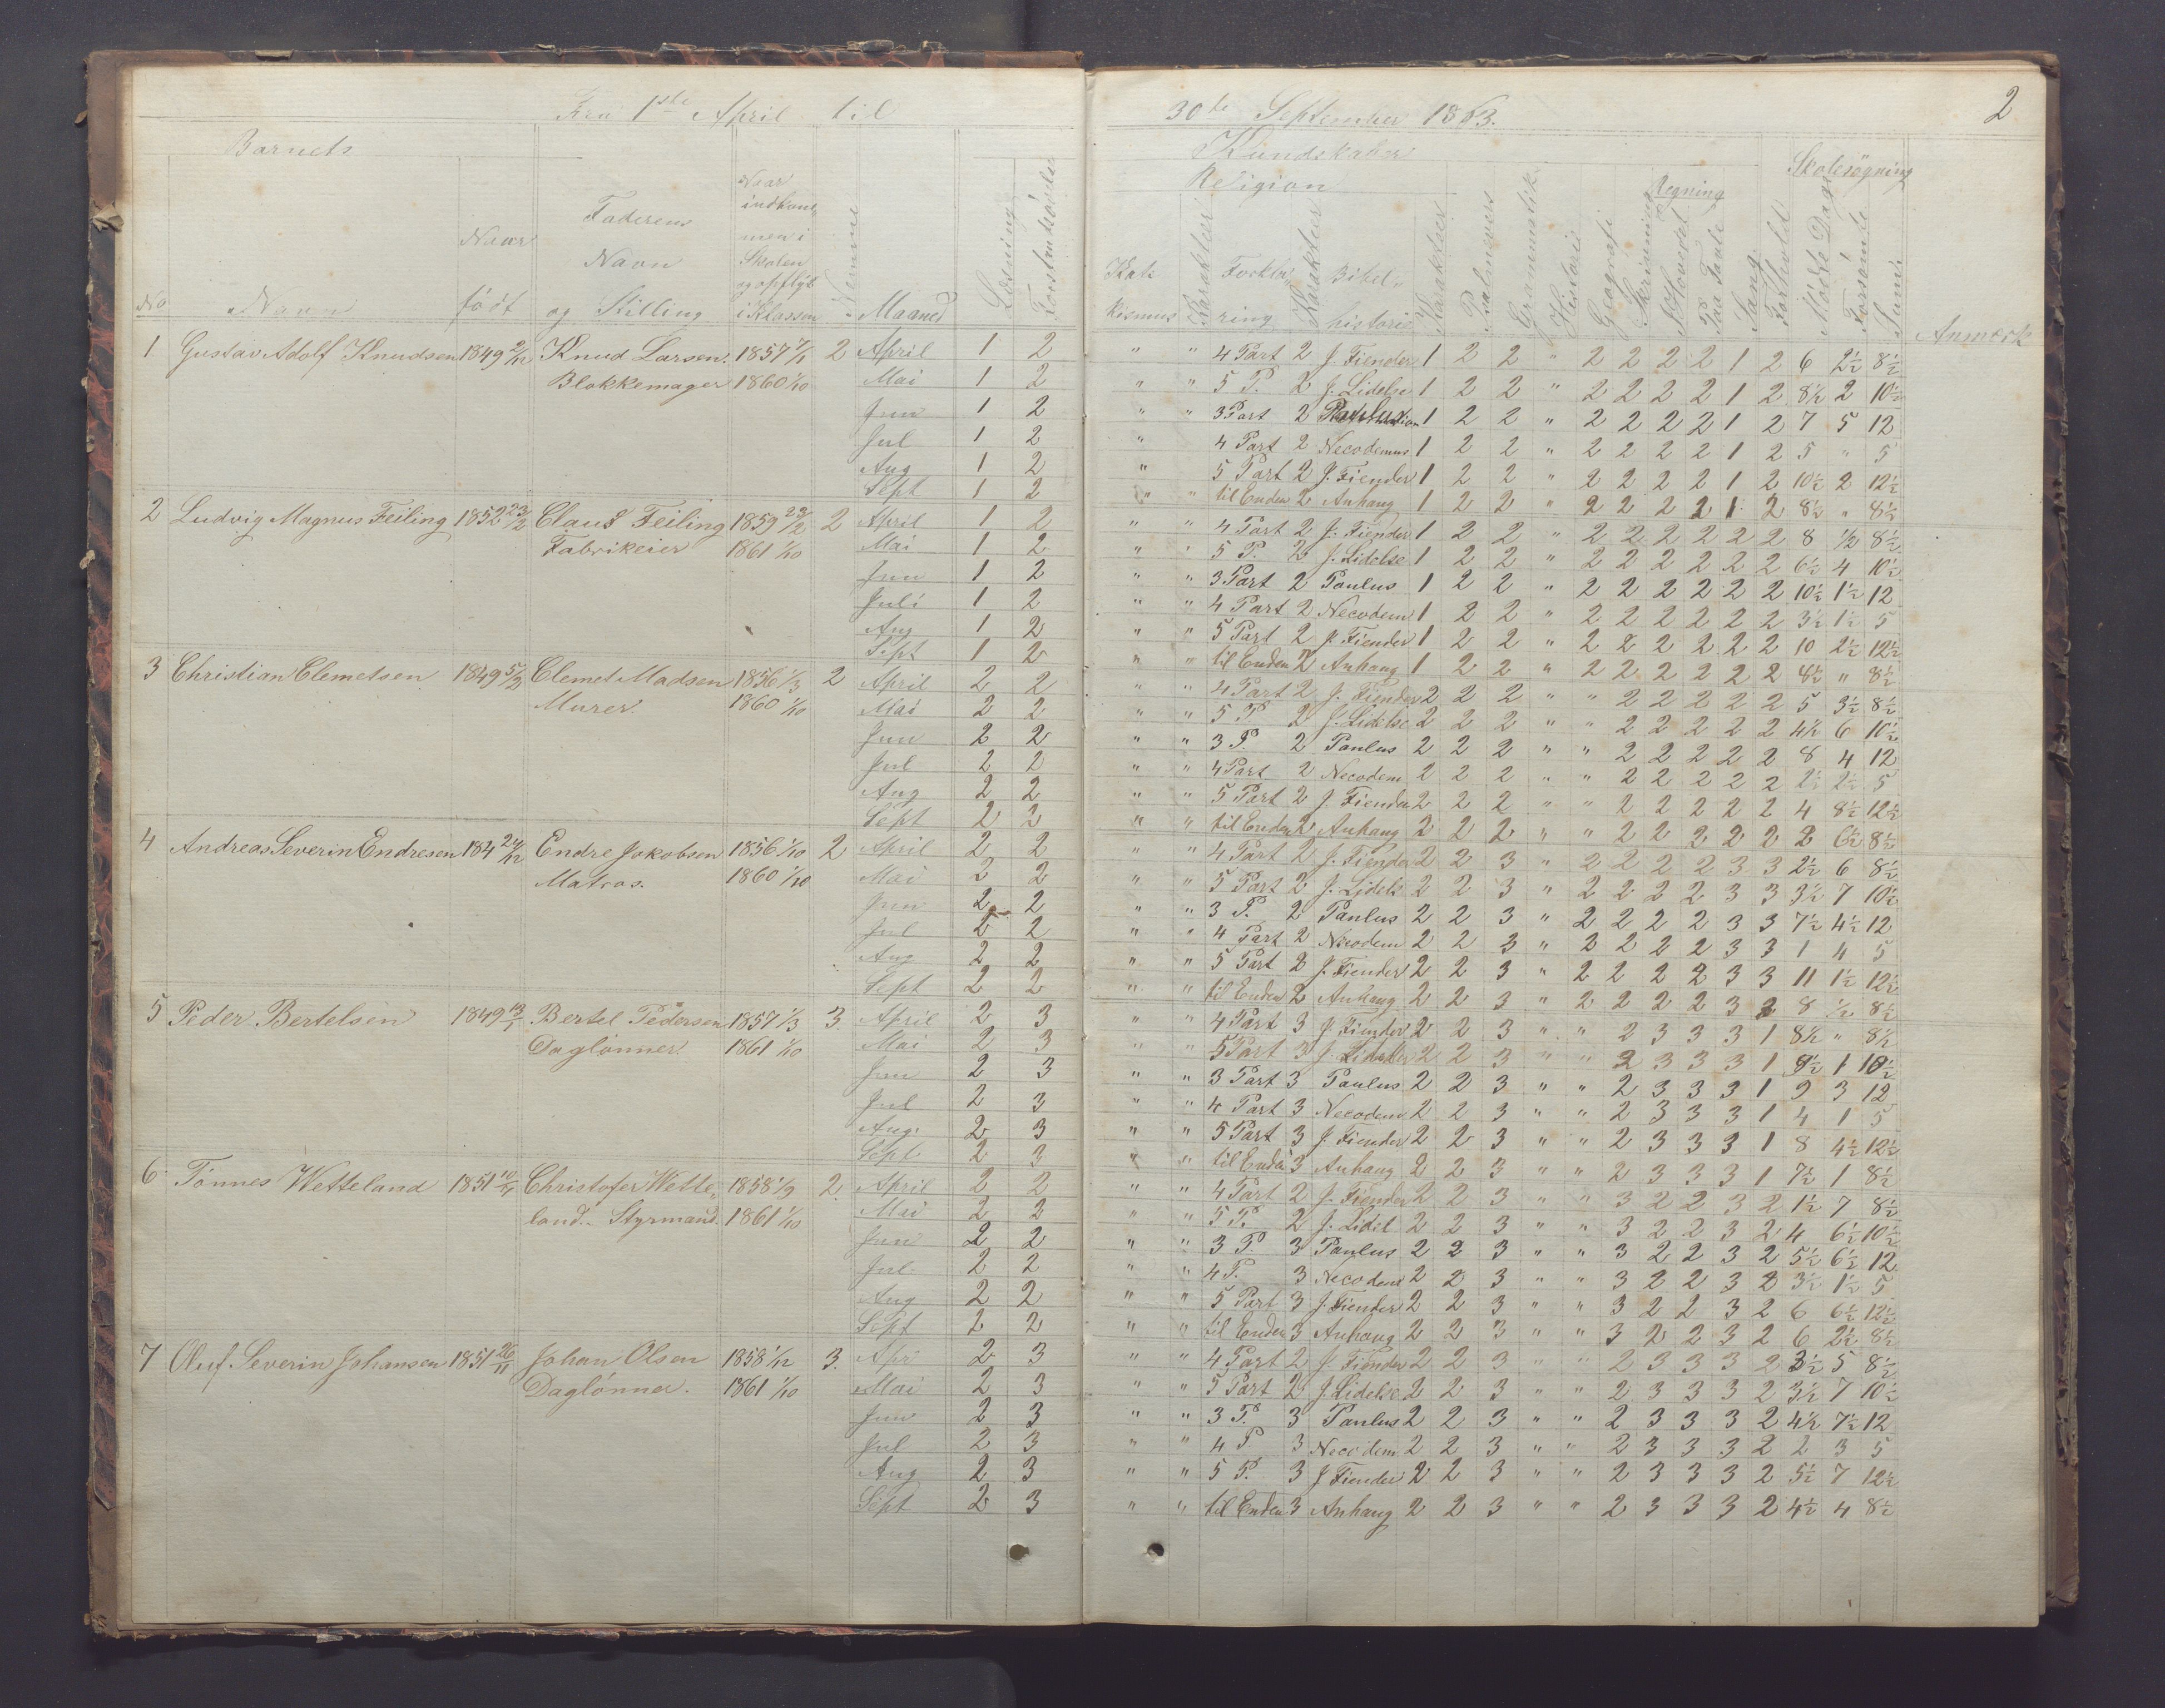 Fra 1ste April til 30te September 1863. 2
Barnets
Kundskaber
Skolesøgning
Religion
Regning
No Navn Naar født Faderens Navn og Stilling Naar indkommen i Skolen og opflyt i Klassen Nemme Maaned Læsning Forstandsøvelse
Katekismus Karakter Forklaring Karakter Bibelhistorie Karakter Psalmevers Grammatik Historie Geografi Skrivning I Hovedet Paa Tavle Sang Forhold Mødte Dage Forsømte Sum Anmærk
1 Gustav Adolf Knudsen 1849 Knud Larsen. 1857 2 April 1 2 " " 4 Part 2 J. Fiender 1 2 2 " 2 2 2 2 1 2 6 2½ 8½
Blokkemager 1860 1/10 Mai 1 2 " " 5 P. 2 J. Lidelse 1 2 2 " 2 2 2 2 1 2 8½ 2 10½
Jun 1 2 " " 3 Part 2 1 2 2 " 2 2 2 2 1 2 7 5 12
Jul 1 2 " 4 Part 2 Necodemus 1 2 2 " 2 2 2 2 1 2 5 " 5
Aug 1 2 " 5 Part 2 J. Fiender 1 2 2 " 2 2 2 2 1 2 10½ 2 12½
Sept 1 2 " " til Enden 2 Anhang 1 2 2 " 2 2 2 2 1 2 8½ " 8½
2 Ludvig Magnus Feiling 1852 23/2 Claus Feiling 1859 2 April 1 2 " " 4 Part 2 J. Fiender 1 2 2 " 2 2 2 2 2 2 8 ½ 8½
Fabrikeier 1861 1/10 Mai 1 2 " " 5 P. 2 J. Lidelse 1 2 2 " 2 2 2 2 2 2 6½ 4 10½
Jun 1 2 " " 3 Part 2 Paulus 1 2 2 " 2 2 2 2 2 2 10½ 1½ 12
Juli 1 2 " " 4 Part 2 Necodem 1 2 2 " 2 2 2 2 2 2 3½ 1½ 5
Aug 1 2 " " 5 Part 2 J. Fiender 1 2 2 " 2 2 2 2 2 2 10 2½ 12½
Sept 1 2 " " til Enden 2 Anhang 1 2 2 " 2 2 2 2 2 2 8½ " 8½
3 Christian Clemetsen 1849 5/2 Clemet Madsen 1856 1/3 2 April 2 2 " " 4 Part 2 J. Fiender 2 2 2 " " 2 2 2 2 2 5 3½ 8½
Murer. 1860 1/10 Mai 2 2 " " 5 P. 2 J. Lidelse 2 2 2 " " 2 2 2 2 2 4½ 6 10½
Jun 2 2 " " 3 P. 2 Paulus 2 2 2 " " 2 2 2 2 2 8 4 12
Jul 2 2 " " 4 Part 2 Necodem 2 2 2 " " 2 2 2 2 2 2½ 2½ 5
Aug 2 2 " " 5 Part 2 J. Fiender 2 2 2 " " 2 2 2 2 2 4 8½ 12½
Sept 2 2 " " til Enden 2 Anhang 2 2 2 " " 2 2 2 2 2 2 6½ 8½
4 Andreas Severin Endresen 184 Endre Jakobsen 1856 1/10 2 April 2 2 " " 4 Part 2 J. Fiender 2 2 3 " 2 2 2 2 3 3 2½ 6 8½
Matros. 1860 1/10 Mai 2 2 " " 5 Part 2 J. Lidels 2 2 3 " 2 2 2 2 3 3 3½ 7 10½
Jun 2 2 " " 3 P. 2 Paulus 2 2 3 " 2 2 2 2 3 3 7½ 4½ 12
Jul 2 2 " " 4 Part 2 Necodem 2 2 3 " 2 2 2 2 3 3 1 4 5
Aug 2 2 " " 5 Part 2 J. Fiender 2 2 3 " 2 2 2 2 3 3 11 1½ 12½
Sept 2 2 " " til Enden 2 Anhang 2 2 3 " 2 2 2 2 3 2 8 ½ 8½
5 Peder Bertelsen 1849 13/1 Bertel Pedersen 1857 1/3 3. April 2 3 " " 4 Part 3 J. Fiender 2 2 3 " " 2 3 3 3 1 8½ " 8½
Daglønner. 1861 1/10 Mai 2 3 " " 5 Part 3 J. Lidelse 2 2 3 " " 2 3 3 3 1 9½ 1 10½
Jun 2 3 " " 3 Part 3 Paulus 2 2 3 " " 2 3 3 3 1 9 3 12
Jul 2 3 " " 4 Part 3 Necodem 2 2 3 " " 2 3 3 3 1 4 1 5
Aug. 2 3 " " 5 Part 3 J. Fiender 2 2 3 " " 2 3 3 3 1 8 4½ 12½
Sept 2 3 " " til Enden 3 Anhang 2 2 3 " " 2 3 3 3 1 7½ 1 8½
6 Tønnes Wetteland 1851 Christofer Wette„ 1858 1/9 2. April 2 2 " " 4 Part 2 J. Fiender 2 2 3 " " 3 2 2 3 2 1½ 7 8½
land. Styrmand. 1861 1/10 Mai 2 2 " " 5 P. 2 J. Lidel 2 2 3 " " 3 2 2 3 2 4 6½ 10½
Jun 2 2 " " 3 P. 3 Paulus 2 2 3 " " 3 2 2 3 2 5½ 6½ 12
Jul. 2 2 " " 4 P. 3 Necodem 2 2 3 " " 3 2 2 3 2 3½ 1½ 5
Aug 2 2 " " 5 Part 3 J. Fiender 2 2 3 " " 3 2 2 3 2 6 6½ 12½
Sept 2 2 " " til Enden 3 Anhang 2 2 3 " " 3 2 2 3 2 6 2½ 8½
7 Oluf Severin Johansen 1851 26/11 Johan Olsen 1858 1/12 3. Apr 2 3 " " 4 Part 2 J. Fiender 2 2 3 " " 2 3 3 3 2 3½ 5 8½
Daglønner. 1861 1/10 Mai 2 3 " " 5 Part 2 J. Lidelse 2 2 3 " " 2 3 3 3 2 3½ 7 10½
Jun 2 3 " " 3 P. 3 Paulus 2 2 3 " " 2 3 3 3 2 4½ 7½ 12
Jul 2 3 " " 4 P 3 Necodem 2 2 3 " " 2 3 3 3 2 2 3 5
Aug 2 3 " " 5 P. 3 J Fiender 2 2 3 " " 2 3 3 3 2 5½ 7 12½
Sept 2 3 " " til Enden 3 Anhang 2 2 3 " " 2 3 3 3 2 4½ 4 8½